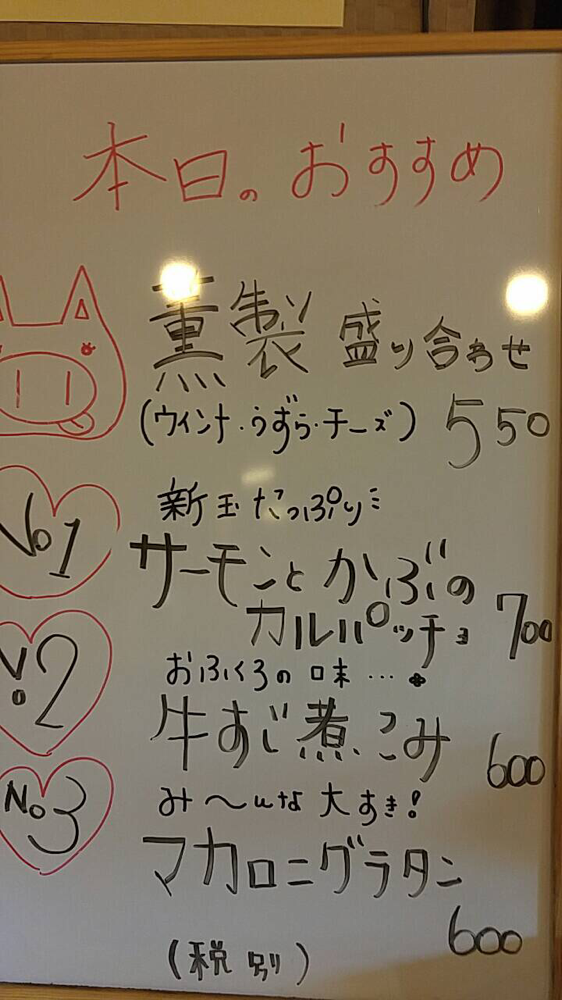 本日のおすすめ
薫製 盛り合わせ
(ウィンナ・うずら・チーズ) 550
No1
新玉たっぷり
サーモンとかぶの
カルパッチョ 700
No2
おふくろの味…
牛すじ煮こみ 600
No3
み〜んな大すき!
マカロニグラタン
600
(税別)